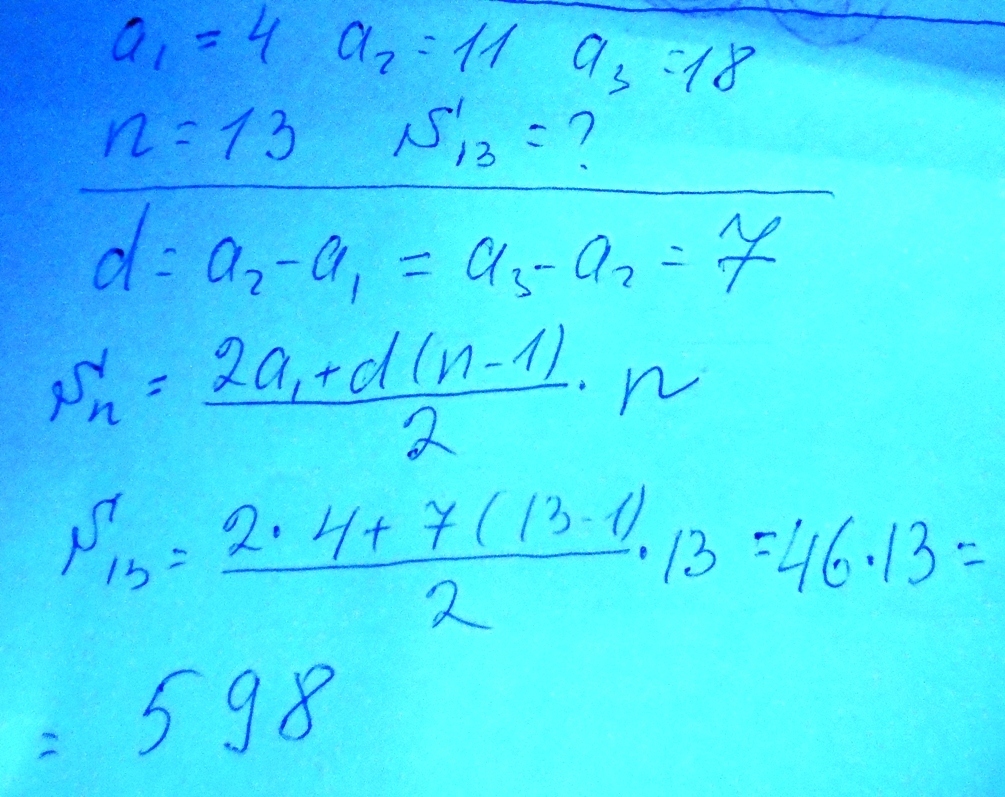 a₁ = 4 a₂ = 11 a₃ = 18
n = 13 S₁₃ = ?
d = a₂ - a₁ = a₃ - a₂ = 7
Sₙ = (2a₁ + d(n - 1))/2 · n
S₁₃ = (2 · 4 + 7(13 - 1))/2 · 13 = 46 · 13 =
= 598